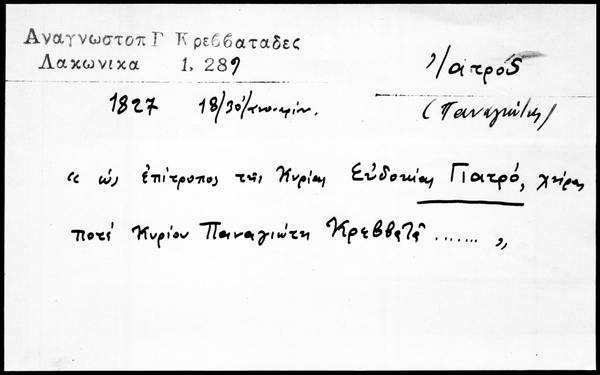 Αναγνωστοπ Γ Κρεββαταδες
Λακωνικα 1, 289
Γιατρός
(Παναγιώτης)
1827 18/30
« ὡς ἐπίτροπος τῆς Κυρίας Εὐδοκίας Γιατρό, χήρας
ποτέ Κυρίου Παναγιώτη Κρεββατᾶ ....... »